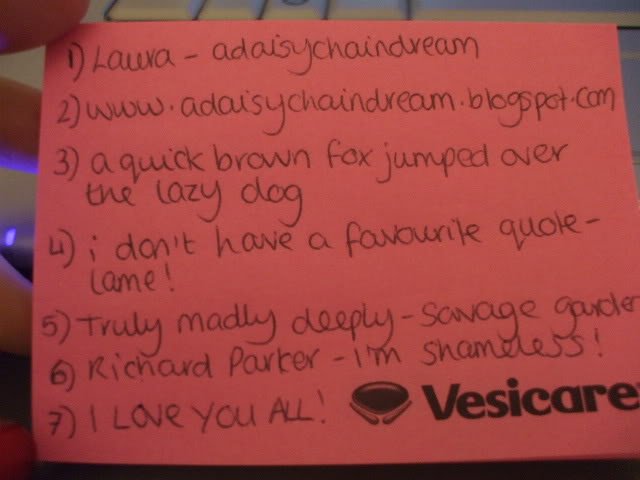 1) Laura - adaisychaindream
2) www.adaisychaindream.blogspot.com
3) a quick brown fox jumped over
the lazy dog
4) i don't have a favourite quote -
lame!
5) Truly madly deeply - savage garden
6) Richard Parker - I'm shameless!
7) I LOVE YOU ALL!
Vesicare